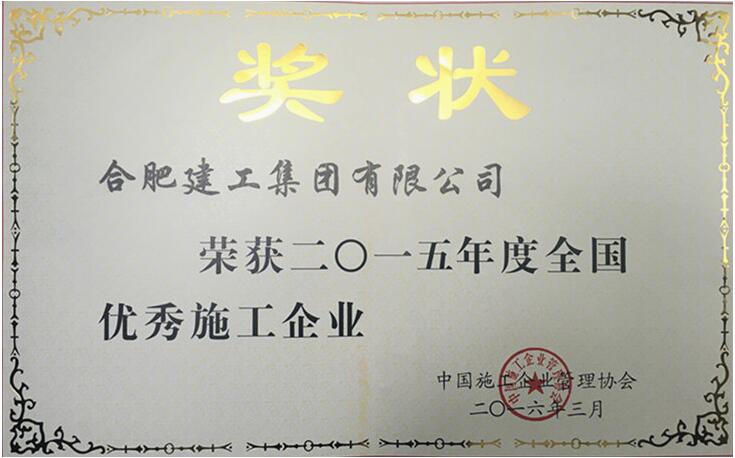 奖状
合肥建工集团有限公司
荣获二〇一五年度全国
优秀施工企业
中国施工企业管理协会
二〇一六年三月